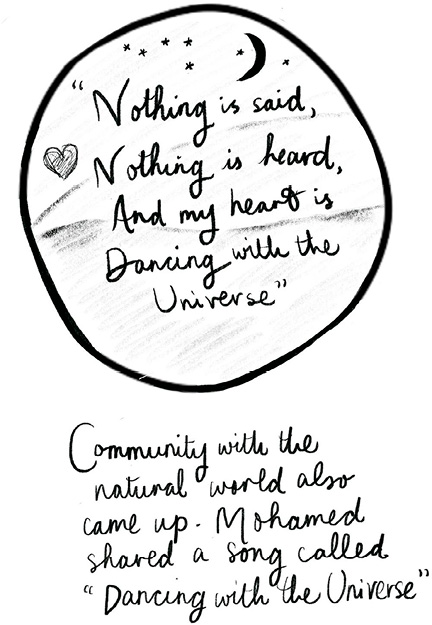 “Nothing is said,
Nothing is heard,
And my heart is
Dancing with the
Universe”
Community with the
natural world also
came up. Mohamed
shared a song called
“Dancing with the Universe”